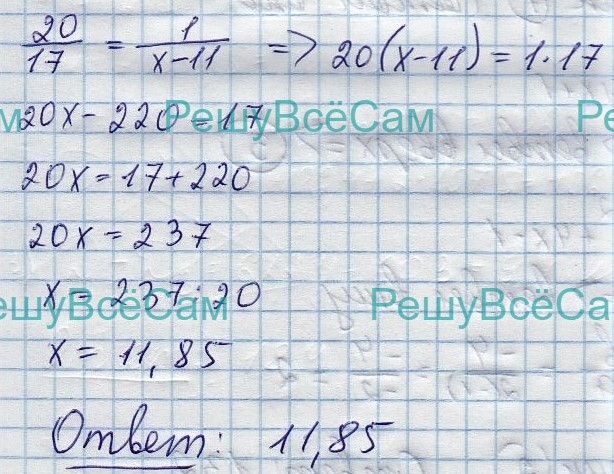 20/17 = 1/(x-11) => 20(x-11) = 1·17
20x - 220 = 17
РешуВсёСам
20x = 17 + 220
20x = 237
x = 237:20
РешуВсёСам
x = 11,85
Ответ: 11,85